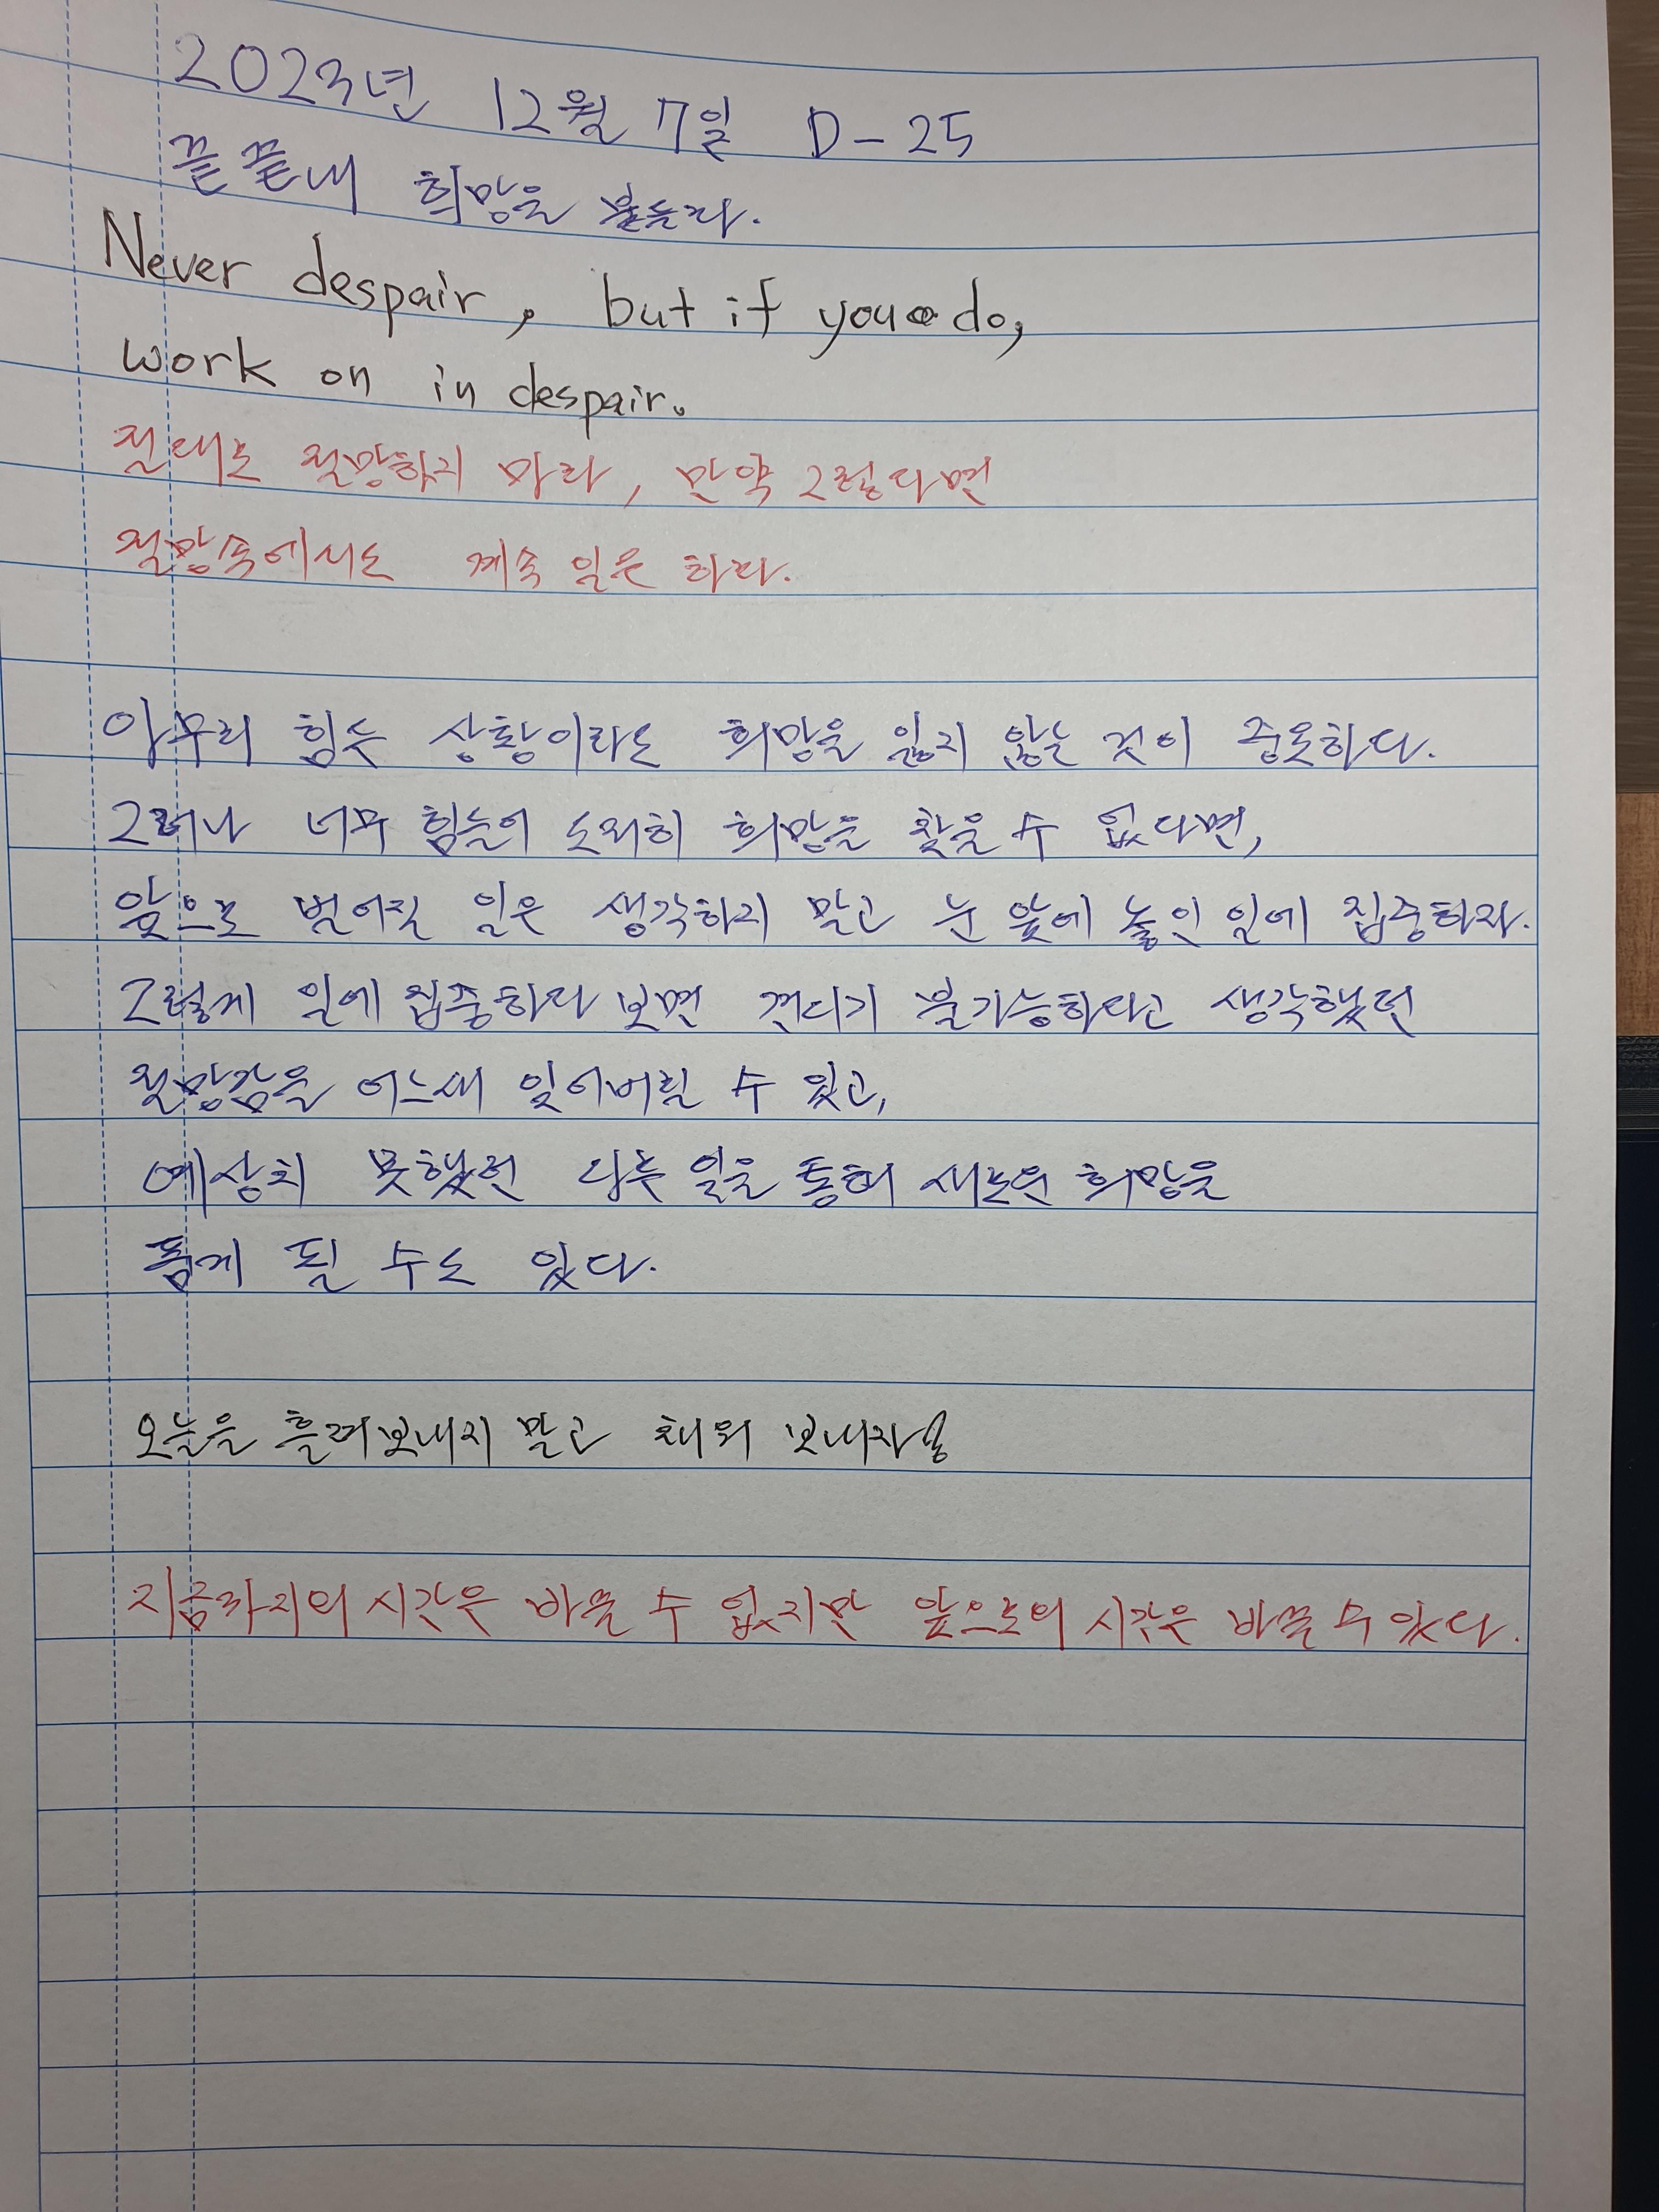 2023년 12월 7일 D-25
끝끝내 희망을 붙들라.
Never despair, but if you do,
work on in despair.
절대로 절망하지 마라, 만약 그렇다면
절망속에서도 계속 일을 하라.
아무리 힘든 상황이라도 희망을 잃지 않는 것이 중요하다.
그러나 너무 힘들어 도저히 희망을 찾을 수 없다면,
앞으로 벌어질 일은 생각하지 말고 눈 앞에 놓인 일에 집중하자.
그렇게 일에 집중하다 보면 견디기 불가능하다고 생각했던
절망감을 어느새 잊어버릴 수 있고,
예상치 못했던 다른 일을 통해 새로운 희망을
품게 될 수도 있다.
오늘을 흘려보내지 말고 채워 보내자!
지금까지의 시간은 바꿀 수 없지만 앞으로의 시간은 바꿀 수 있다.